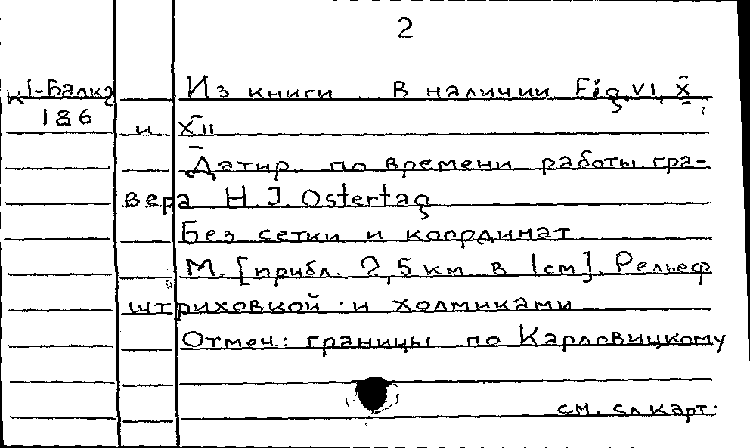 2
К1-Балк
186
Из книги В наличии Fig. VI, X,
и XII
Датир. по времени работы гра-
вера H. J. Ostertag
Без сетки и координат
М. [прибл. 2,5 км в 1см]. Рельеф
штриховкой и холмиками
Отмеч: границы по Карловицкому
см. сл карт.